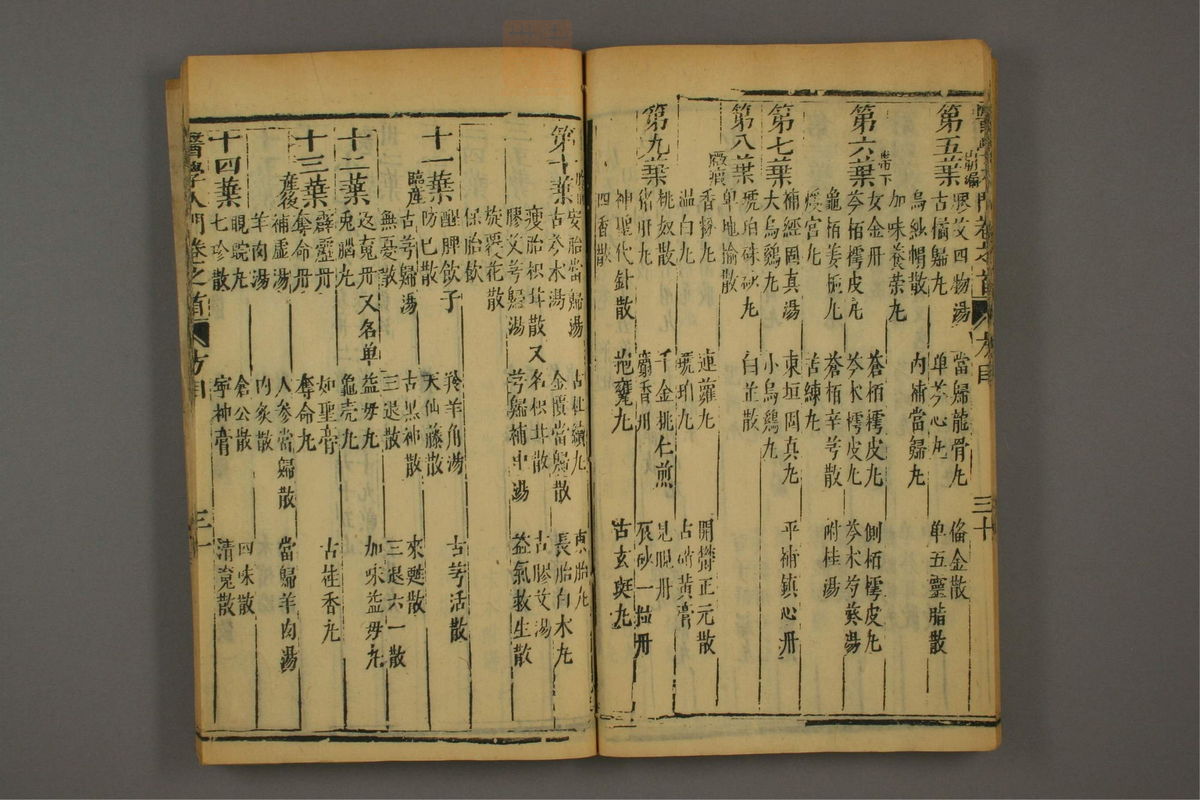 第五葉 膠艾四物湯 當歸龍骨丸 備金散
古橘歸丸 單芩心丸 單五靈脂散
烏紗帽散 內補當歸丸
加味養榮丸
第六葉 帶下 女金丹 蒼栢樗皮丸 側栢樗皮丸
芩栢樗皮丸 芩朮樗皮丸 芩朮芍葵湯
龜栢姜梔丸 蒼栢辛芎散 附桂湯
煖宮丸 苦練丸
第七葉 補經固真湯 東垣固真丸 平補鎮心丹
大烏鷄丸 小烏鷄丸
琥珀硃砂丸 白芷散
第八葉 單地榆散
香棱丸 連蘿丸 開鬱正元散
溫白丸 琥珀丸 古硝黃膏
第九葉 桃奴散 千金桃仁煎 見晛丹
麝香丹 辰砂一粒丹
神聖代針散 抱甕丸 古玄斑丸
四香散
醫學入門卷之首 方目 三十
第十葉 安胎當歸湯 古杜續丸 束胎丸
古芩朮湯 金匱當歸散 長胎白朮丸
瘦胎枳甘散又名枳甘散 古膠艾湯
膠艾芎歸湯 芎歸補中湯 益氣救生散
旋覆花散
保胎飲
十一葉 醒脾飲子 羚羊角湯 古芎活散
防己散 天仙藤散
臨產 古芎歸湯 古黑神散 來甦散
無憂散 三退散 三退六一散
十二葉 返魂丹又名單益母丸 加味益母丸
兔腦丸 龜壳丸
十三葉 霹靂丹 如聖膏 古桂香丸
奪命丹 奪命丸
產後 補虛湯 人參當歸散 當歸羊肉湯
羊肉湯 肉炙散
十四葉 睍睆丸 倉公散 四味散
七珍散 寧神膏 清魂散
醫學入門卷之首 方目 三一